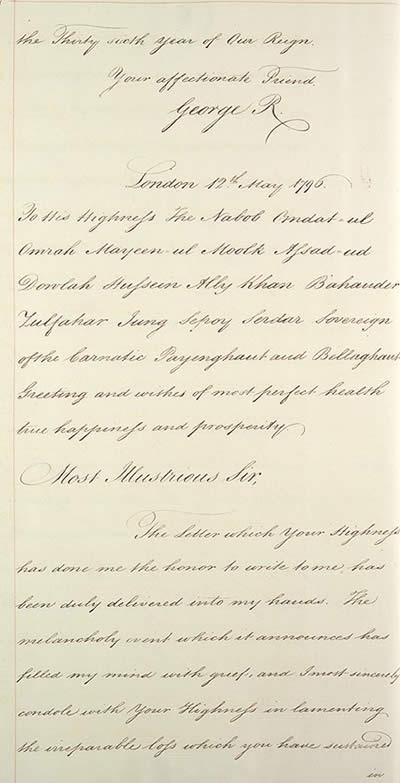 the Thirty sixth year of Our Reign.
Your affectionate Friend.
George R.
London 12th May 1796.
To His Highness The Nabob Omdat-ul
Omrah Mayeen-ul Moolk Assad-ud
Dowlah Hussein Ally Khan Bahauder
Zulfahar Jung Sepoy Serdar Sovereign
of the Carnatic Payenghaut and Bellaghaut
Greeting and wishes of most perfect health
true happiness and prosperity
Most Illustrious Sir,
The Letter which Your Highness
has done me the honor to write to me, has
been duly delivered into my hands. The
melancholy event which it announces has
filled my mind with grief, and I most sincerely
condole with Your Highness in lamenting
the irreparable loss which you have sustained
in